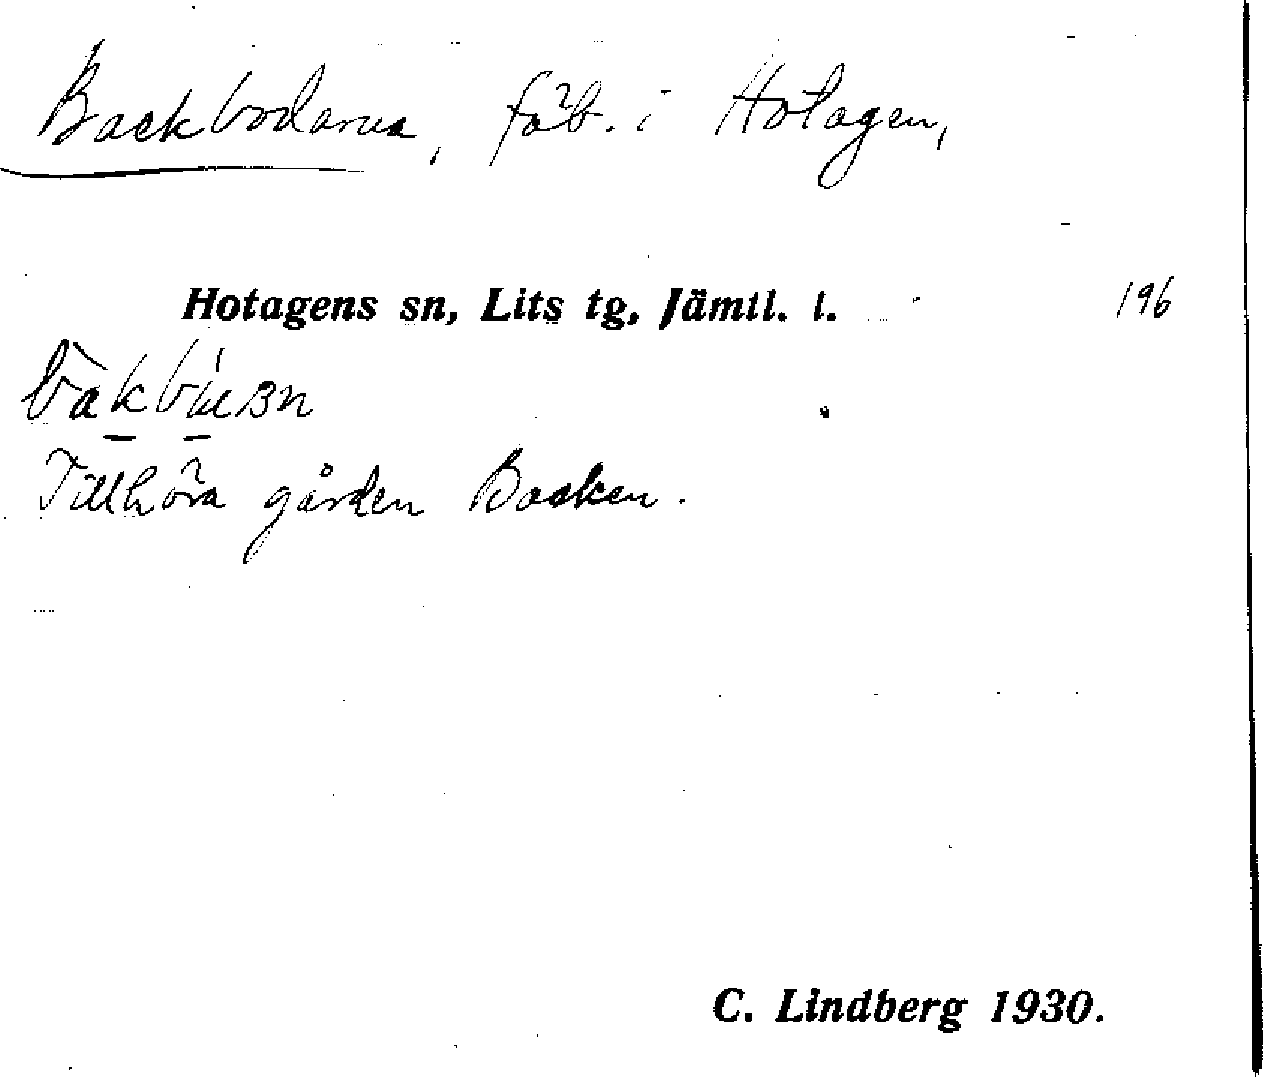 Backbodarna, fäb. i Hotagen,
Hotagens sn, Lits tg, Jämtl. l. 196
Tillhöra gården Backen.
C. Lindberg 1930.